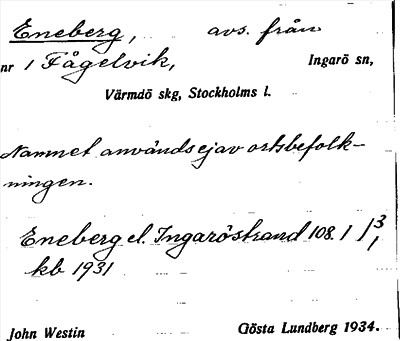 Eneberg, avs. från
nr 1 Fågelvik, Ingarö sn,
Värmdö skg, Stockholms l.
Namnet användes ej av ortsbefolk-
ningen.
Eneberg el. Ingaröstrand 108. 1 1/3,
kb 1931
John Westin Gösta Lundberg 1934.